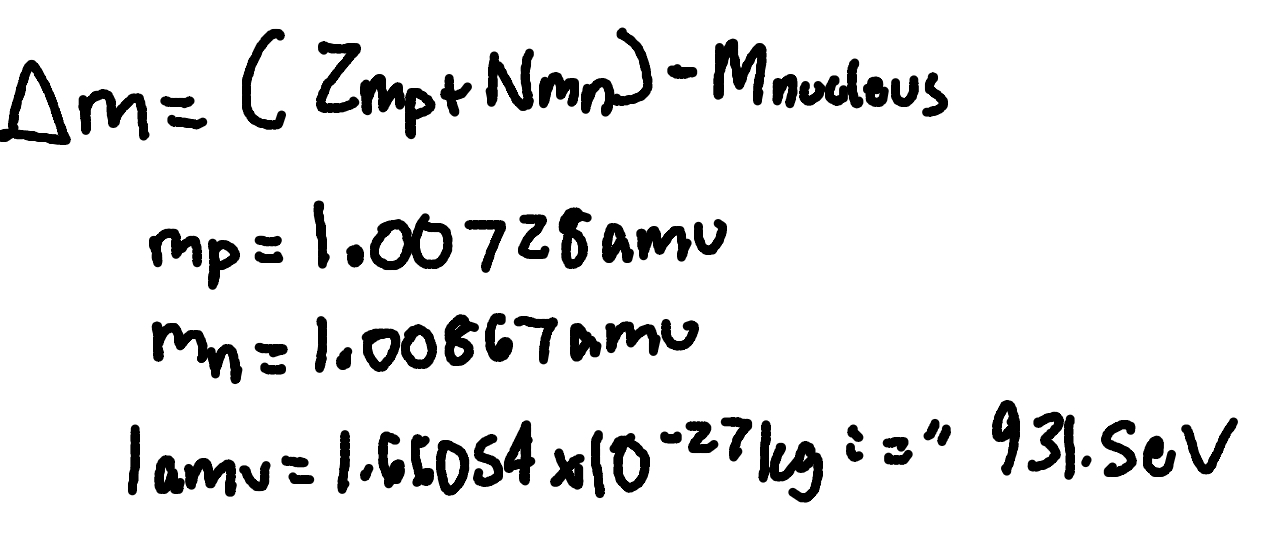 Δm = (Zmp + Nmn) - Mnucleus
mp = 1.00728amu
mn = 1.00867amu
1 amu = 1.66054 x10^-27 kg i = " 931.5eV